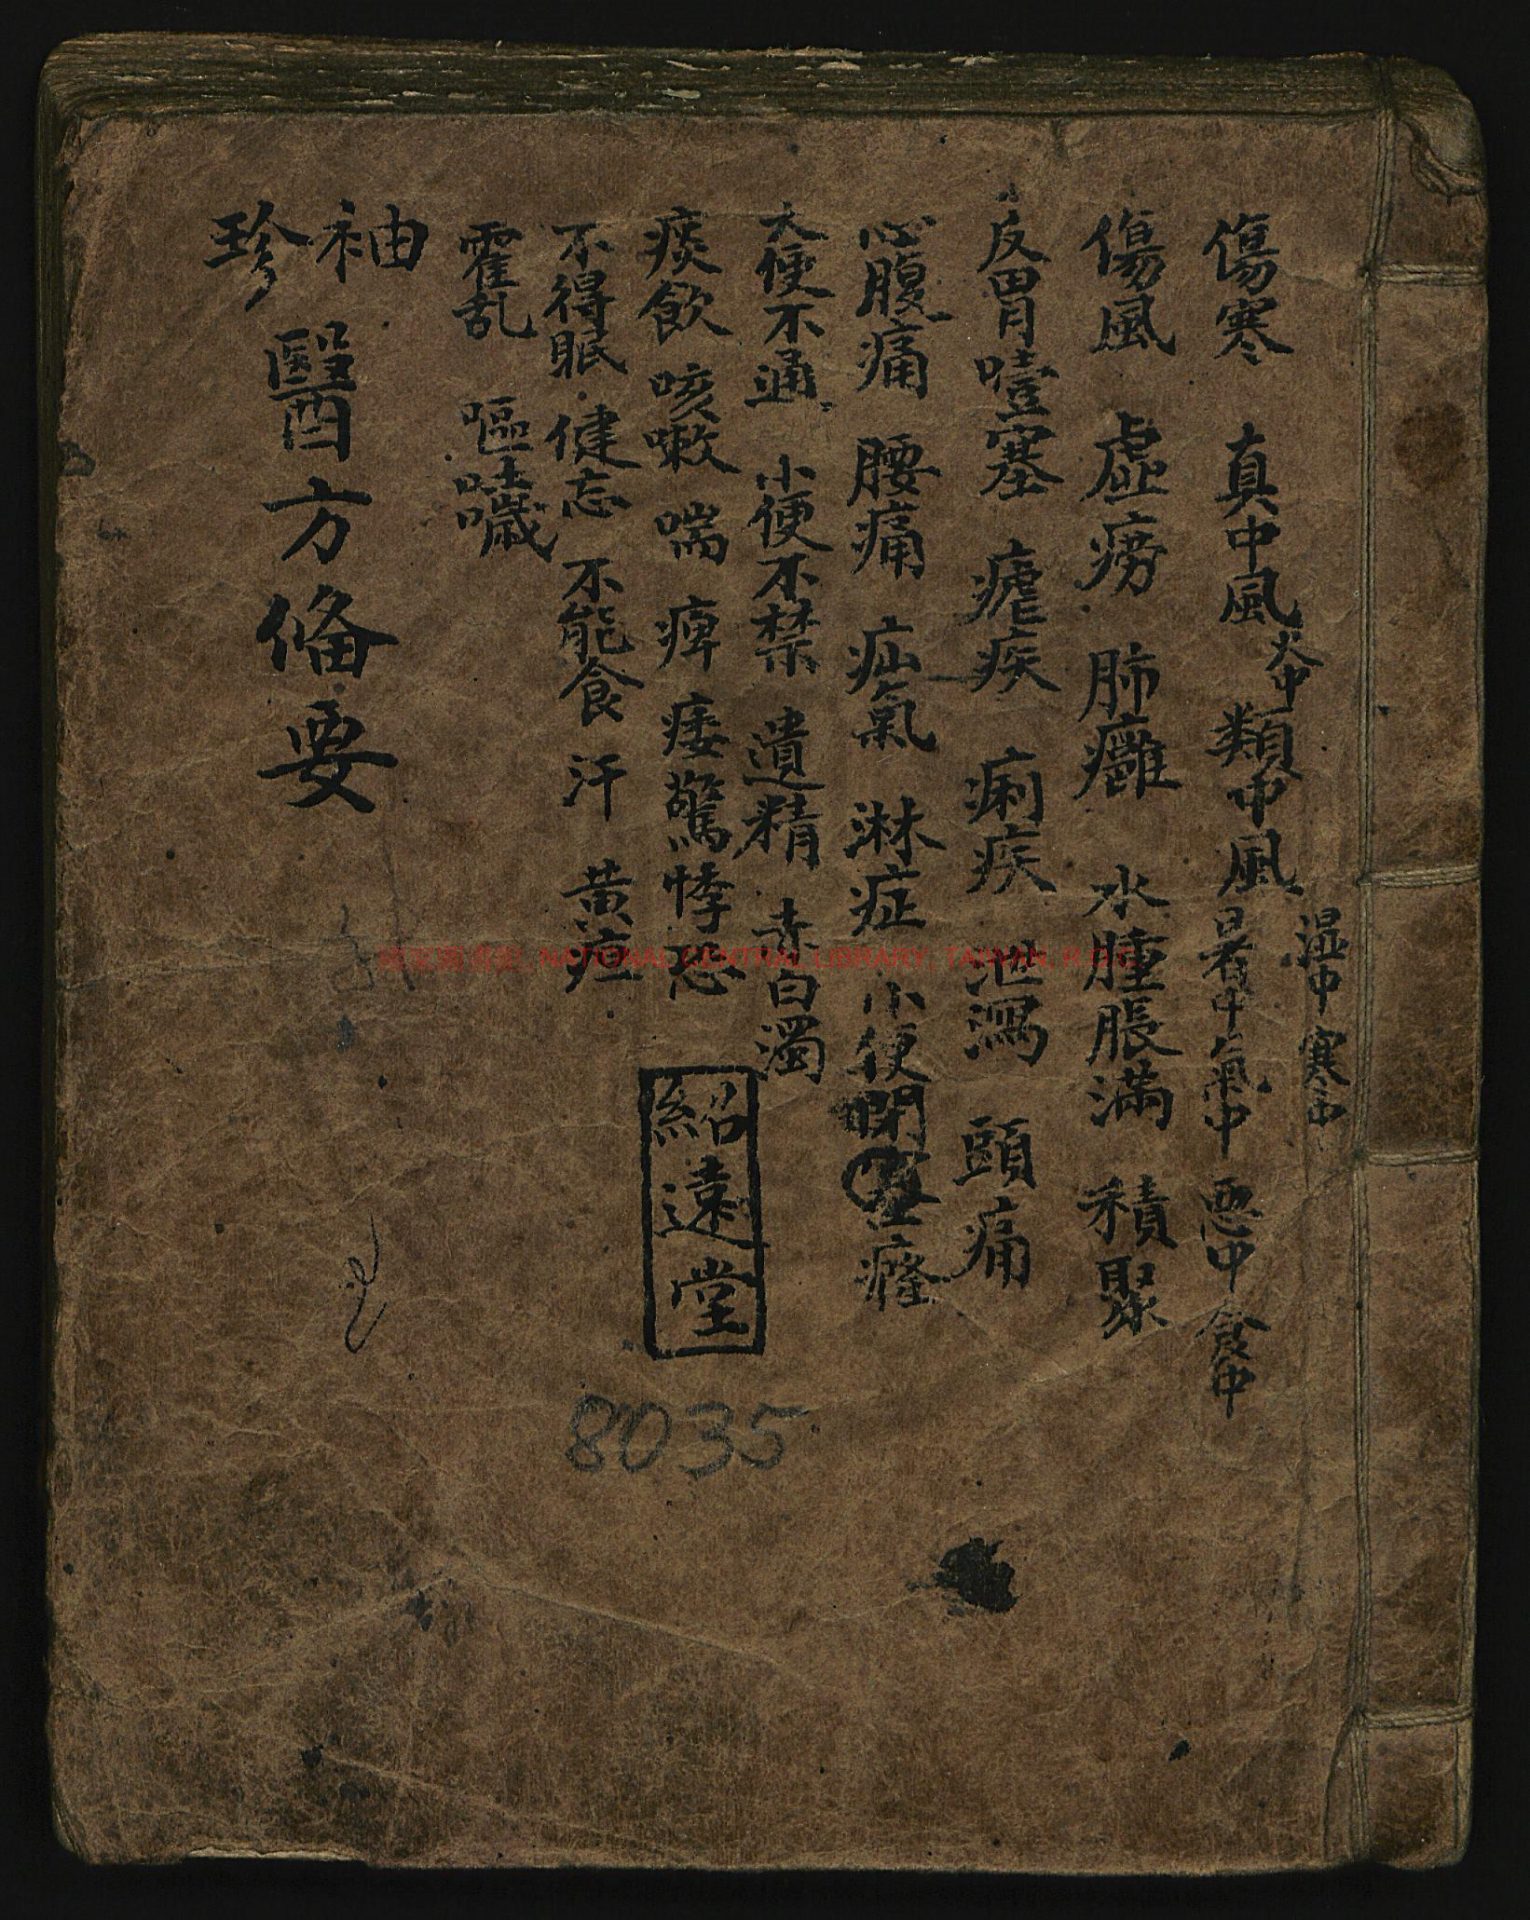 傷寒 真中風 火中 類中風 暑中 氣中 惡中 食中
湿中 寒中
傷風 虛痨 肺癰 水腫脹滿 積聚
反胃噎塞 瘧疾 痢疾 泄瀉 頭痛
心腹痛 腰痛 疝氣 淋症 小便閉 癃
大便不通 小便不禁 遺精 赤白濁
痰飲 咳嗽 喘 痺 痿 驚悸恐
不得眠 健忘 不能食 汗 黃疸
霍乱 嘔噦
袖珍
醫方俻要
紹遠堂
8035
NATIONAL CENTRAL LIBRARY, TAIWAN, R.O.C.